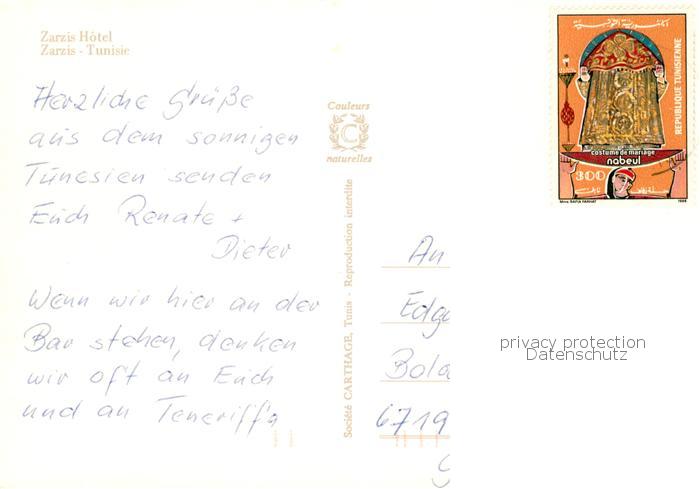 Zarzis Hôtel
Zarzis - Tunisie
Herzliche Grüße
aus dem sonnigen
Tunesien senden
Euch Renate +
Dieter
Wenn wir hier an der
Bar stehen, denken
wir oft an Euch
und an Teneriffa
Couleurs
C
naturelles
Société CARTHAGE, Tunis - Reproduction interdite
الجمهورية التونسية
REPUBLIQUE TUNISIENNE
costume de mariage
nabeul
300
1986
An
Edg
Bola
6719
privacy protection
Datenschutz